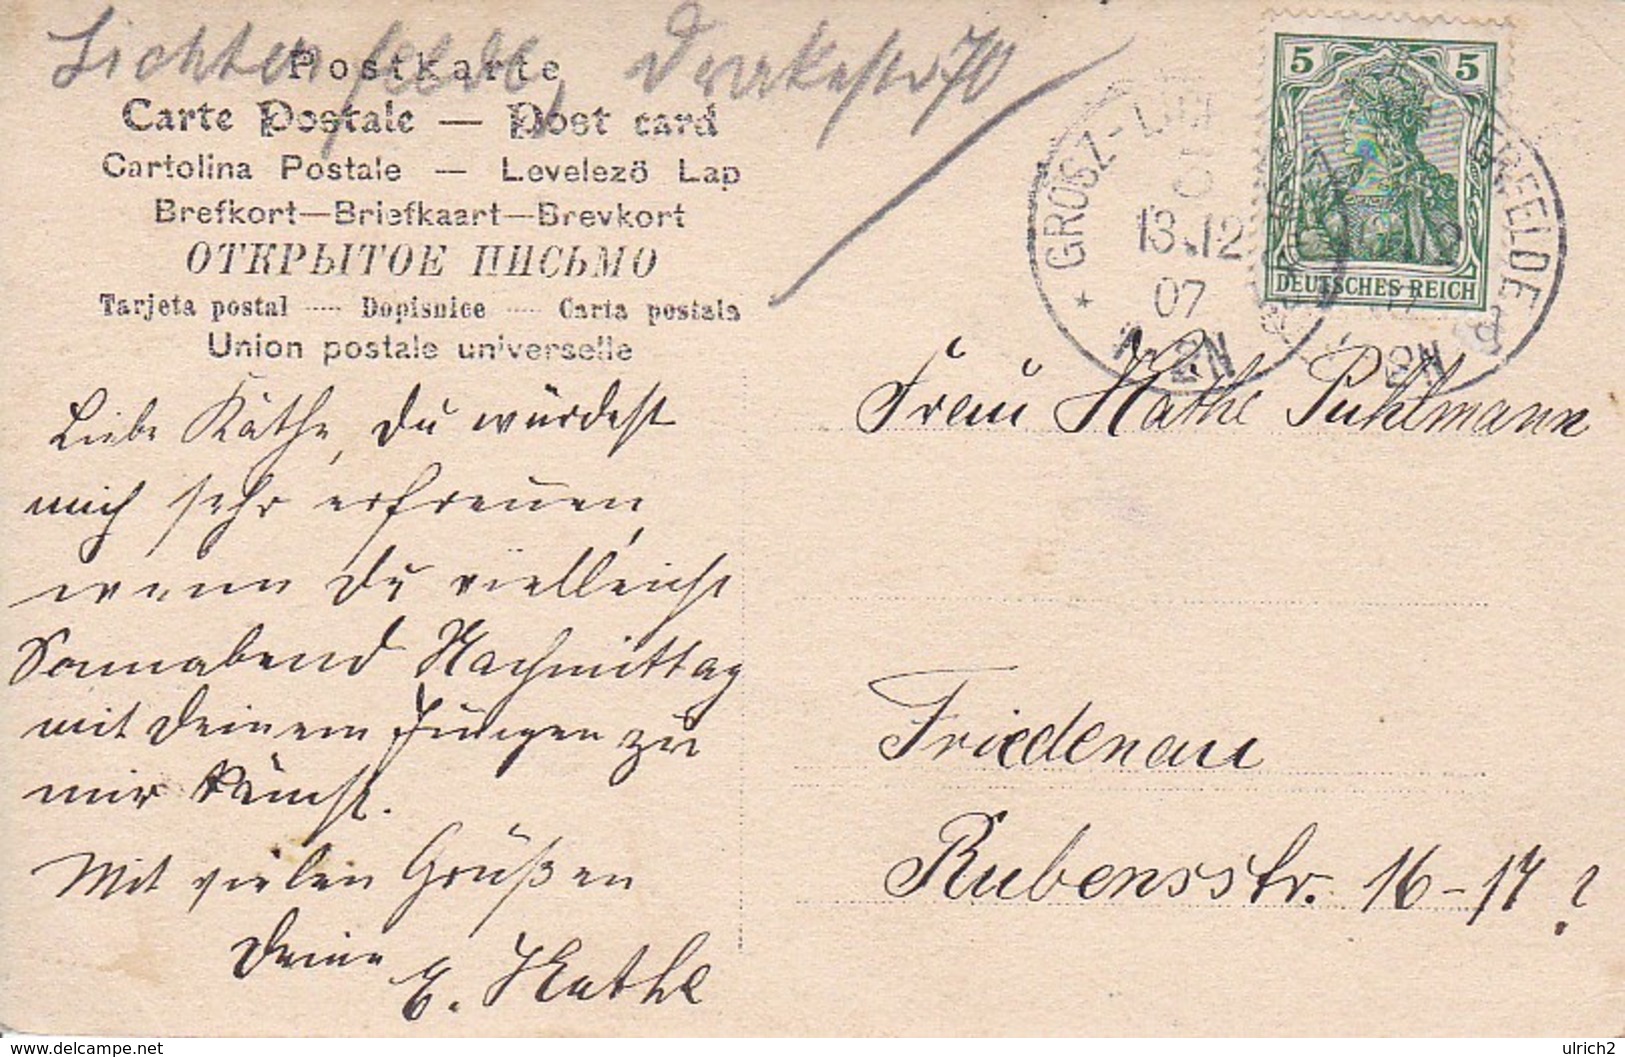 Lichtenfelde, Drakestr 70
Postkarte
Carte Postale — Post card
Cartolina Postale — Levelező Lap
Brefkort—Briefkaart—Brevkort
ОТКРЫТОЕ ПИСЬМО
Tarjeta postal ---- Dopisnice ---- Carta postala
Union postale universelle
Liebe Käthe, Du würdest
mich sehr erfreuen,
wenn Du vielleicht
Sonnabend Nachmittag
mit Deinem Jungen zu
mir kämst.
Mit vielen Grüßen
Deine
E. Kathe
5 5
DEUTSCHES REICH
* GROSZ-LI
TERFELDE
13.12
07
2N
Frau Käthe Puhlmann
Friedenau
Rubensstr. 16-17?
www.delcampe.net
ulrich2